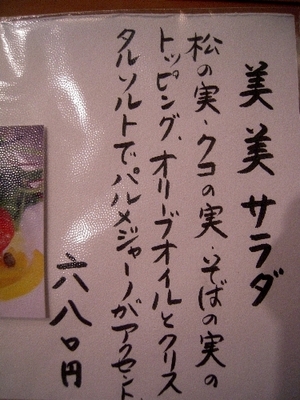 美美サラダ
松の実・クコの実・そばの実の
トッピング、オリーブオイルとクリス
タルソルトで、パルメジャーノがアクセント。
六八〇円